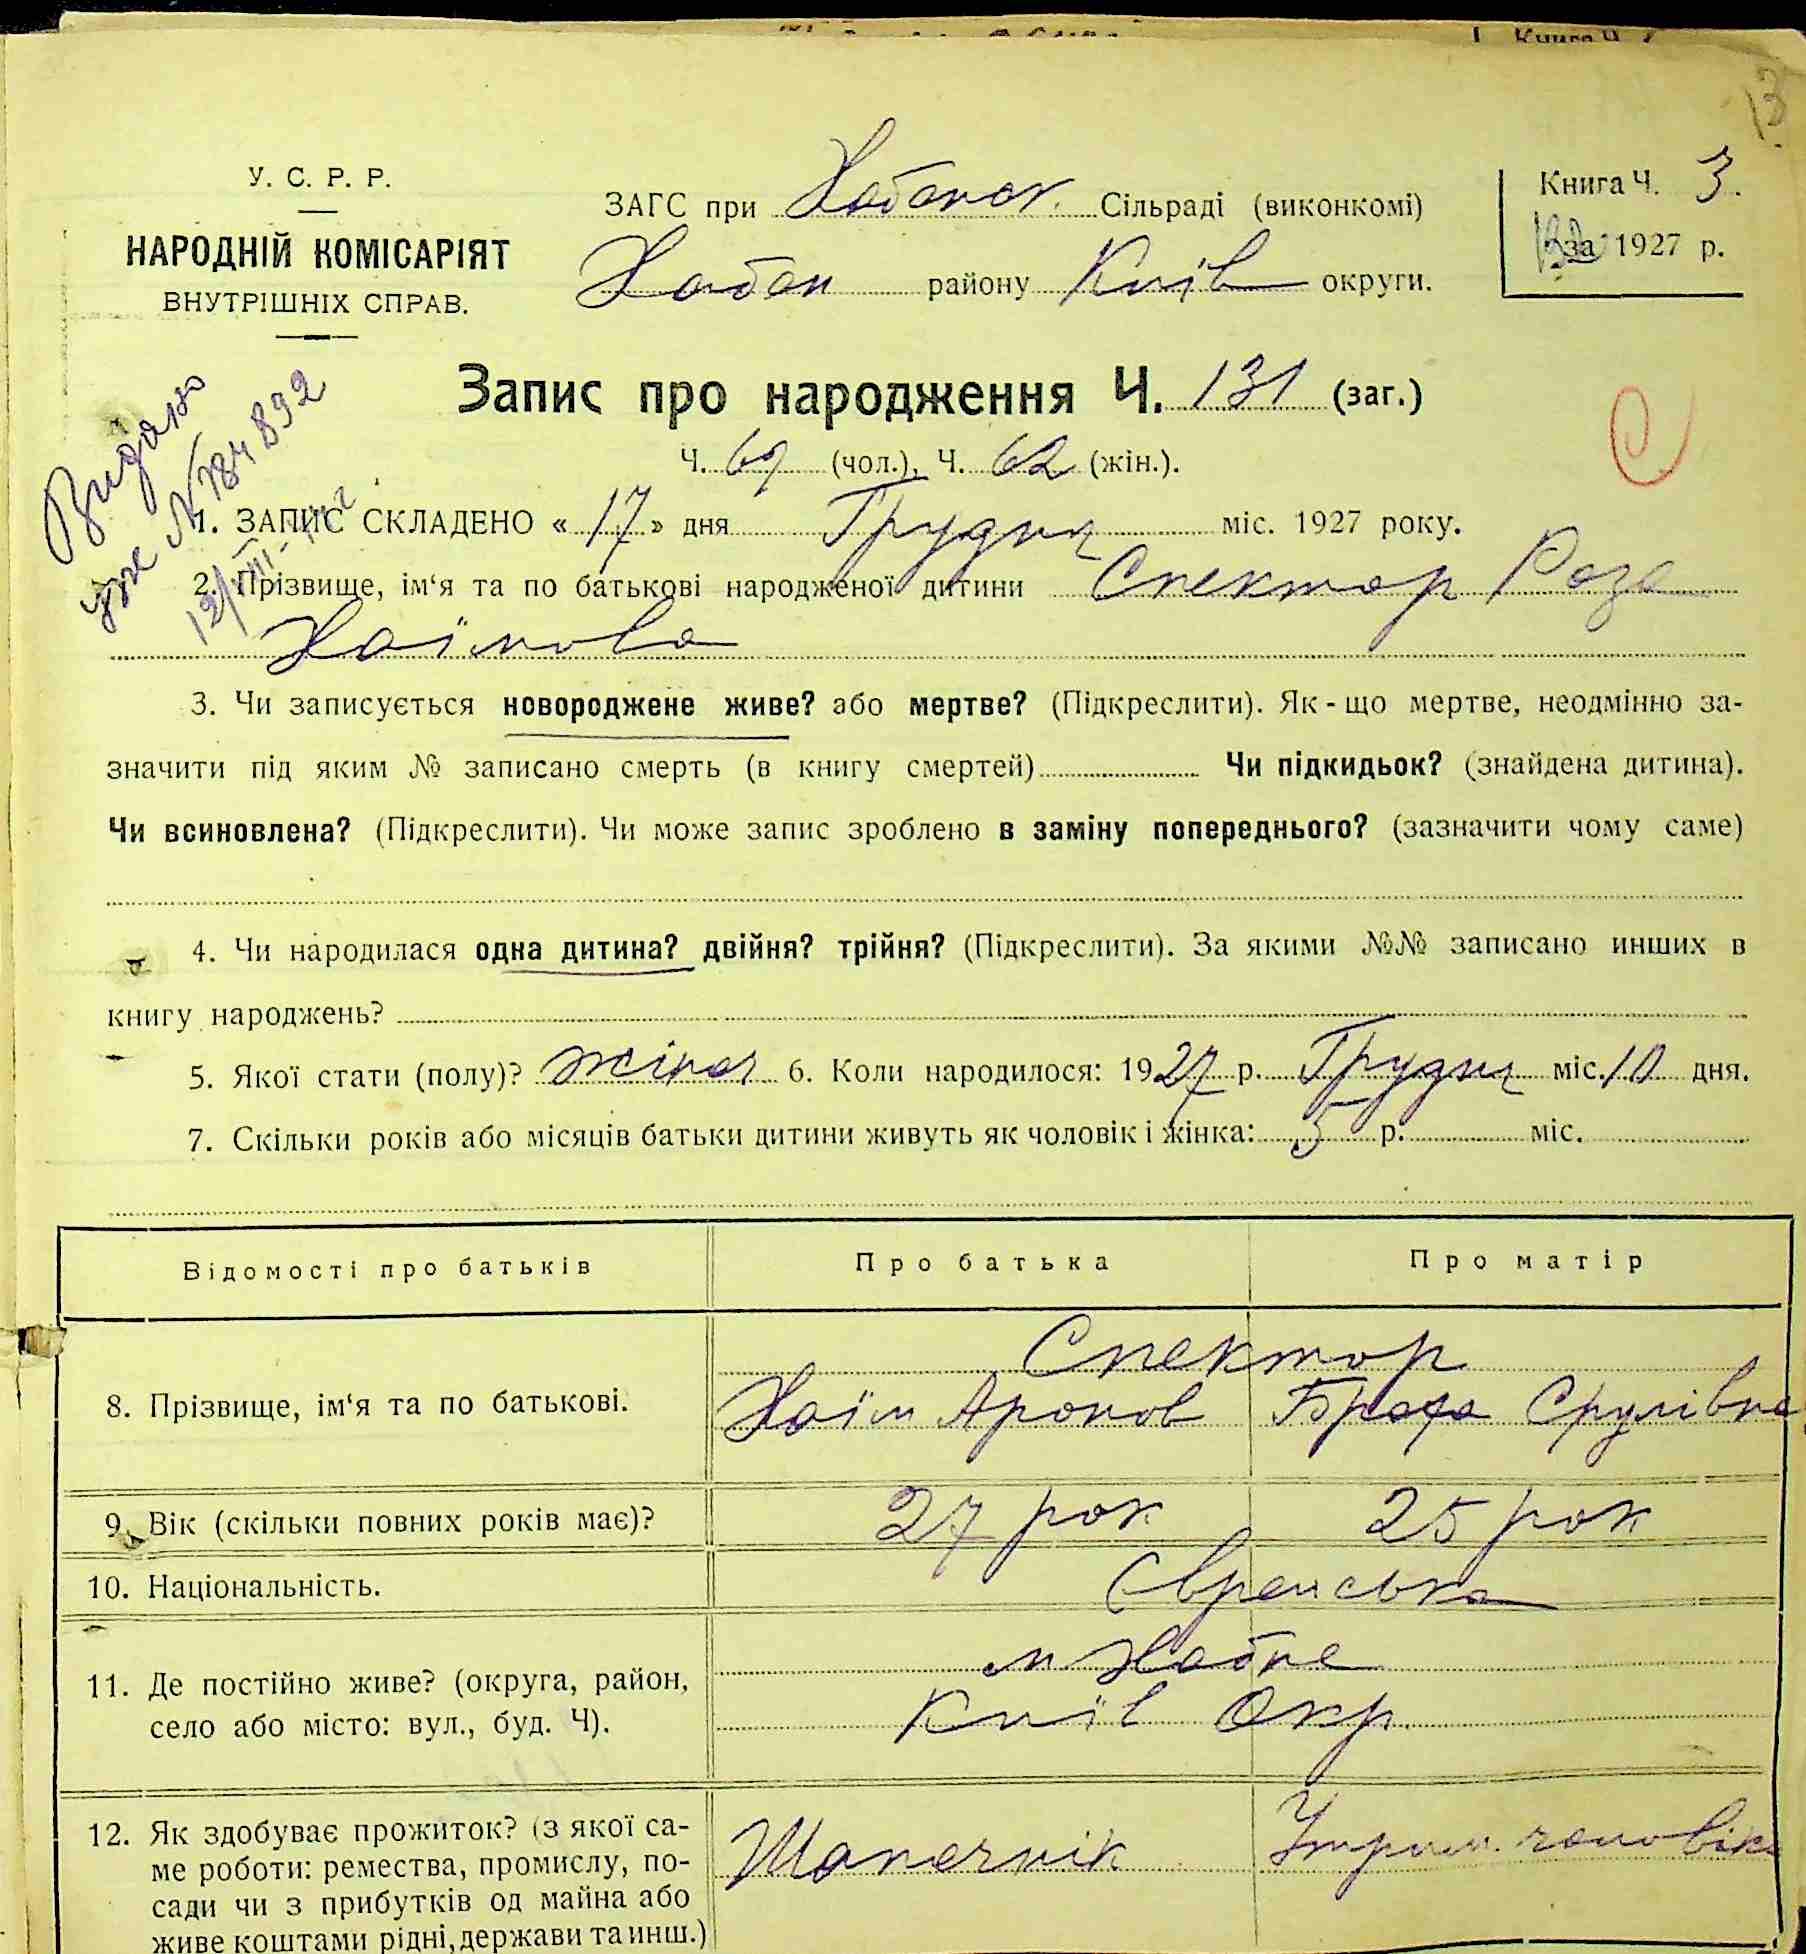 Книга Ч.
13
У. С. Р. Р.
НАРОДНІЙ КОМІСАРІЯТ
ВНУТРІШНІХ СПРАВ.
ЗАГС при Хабенск. Сільраді (виконкомі)
Хабен району Київ округи.
Книга Ч. 3.
за 1927 р.
Запис про народження Ч. 131 (заг.)
Ч. 69 (чол.), Ч. 62 (жін.).
Видано
№ 184892
12/VIII-
1. ЗАПИС СКЛАДЕНО « 17 » дня Грудня міс. 1927 року.
2. Прізвище, ім‘я та по батькові народженої дитини Спектор Роза
Хаїмова
3. Чи записується новороджене живе? або мертве? (Підкреслити). Як-що мертве, неодмінно за-
значити під яким № записано смерть (в книгу смертей) Чи підкидьок? (знайдена дитина).
Чи всиновлена? (Підкреслити). Чи може запис зроблено в заміну попереднього? (зазначити чому саме)
4. Чи народилася одна дитина? двійня? трійня? (Підкреслити). За якими №№ записано инших в
книгу народжень?
5. Якої стати (полу)? жіноч 6. Коли народилося: 1927 р. Грудня міс. 10 дня.
7. Скільки років або місяців батьки дитини живуть як чоловік і жінка: 5 р. міс.
Відомості про батьків Про батька Про матір
Спектор
8. Прізвище, ім‘я та по батькові. Хаїм Аронов Брафа Срулівна
9. Вік (скільки повних років має)? 27 рок 25 рок
10. Національність. Єврейська
м Хабне
11. Де постійно живе? (округа, район,
село або місто: вул., буд. Ч). Київ Окр.
12. Як здобуває прожиток? (з якої са-
ме роботи: ремества, промислу, по- Шапочник Утрим. чоловіка
сади чи з прибутків од майна або
живе коштами рідні, держави та инш.)